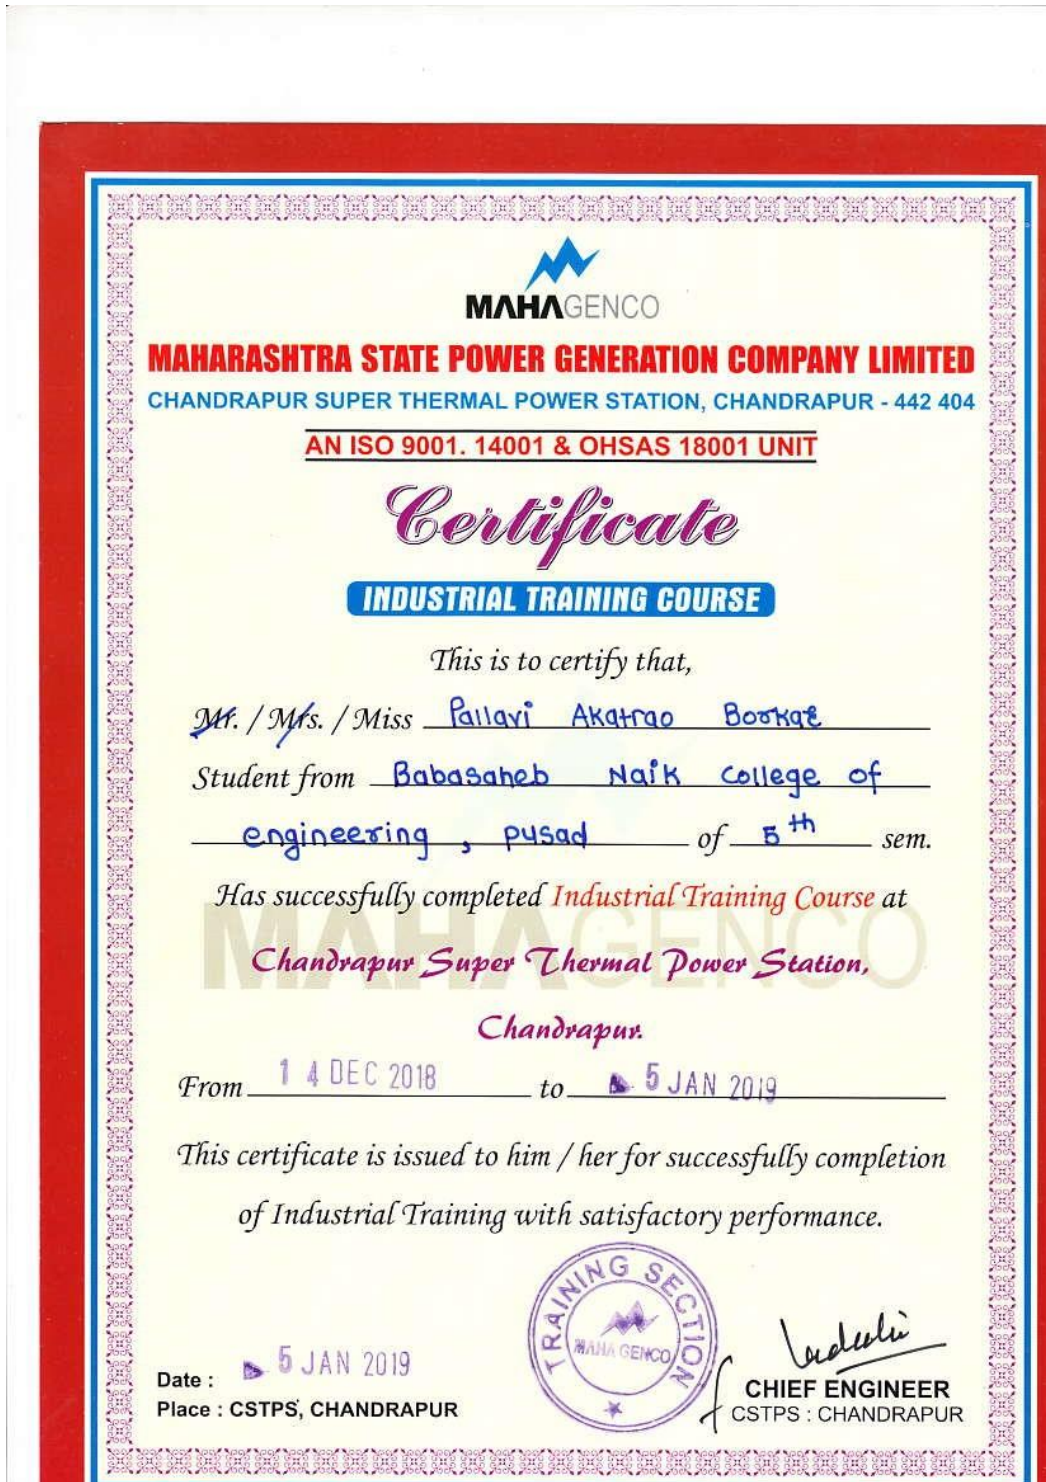 MAHAGENCO
MAHARASHTRA STATE POWER GENERATION COMPANY LIMITED
CHANDRAPUR SUPER THERMAL POWER STATION, CHANDRAPUR - 442 404
AN ISO 9001. 14001 & OHSAS 18001 UNIT
Certificate
INDUSTRIAL TRAINING COURSE
This is to certify that,
Mr. / Mrs. / Miss Pallavi Akatrao Borkar
Student from Babasaheb Naik College of
engineering, pusad of 5th sem.
Has successfully completed Industrial Training Course at
MAHAGENCO
Chandrapur Super Thermal Power Station,
Chandrapur.
From 14 DEC 2018 to 5 JAN 2019
This certificate is issued to him / her for successfully completion
of Industrial Training with satisfactory performance.
TRAINING SECTION
MAHA GENCO
Date : 5 JAN 2019
Place : CSTPS, CHANDRAPUR
CHIEF ENGINEER
CSTPS : CHANDRAPUR